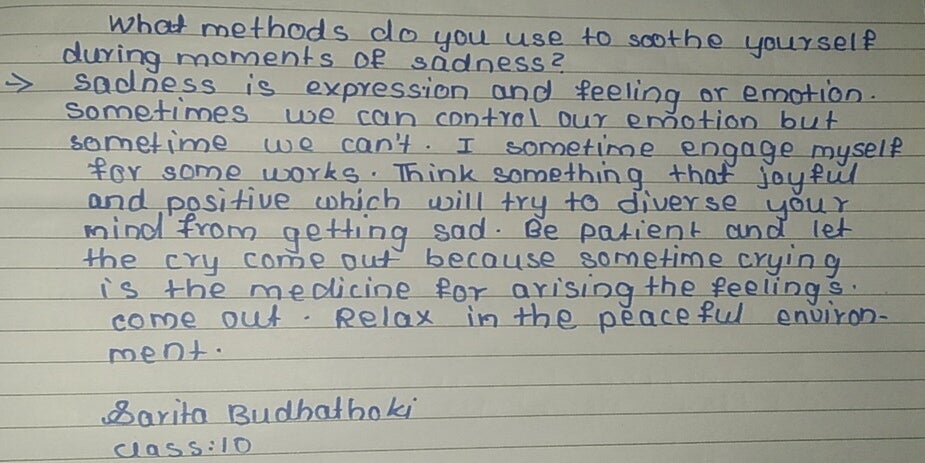 What methods do you use to soothe yourself
during moments of sadness?
→ sadness is expression and feeling or emotion.
sometimes we can control our emotion but
sometime we can't. I sometime engage myself
for some works. Think something that joyful
and positive which will try to diverse your
mind from getting sad. Be patient and let
the cry come out because sometime crying
is the medicine for arising the feelings.
come out. Relax in the peaceful environ-
ment.
Sarita Budhathoki
class:10